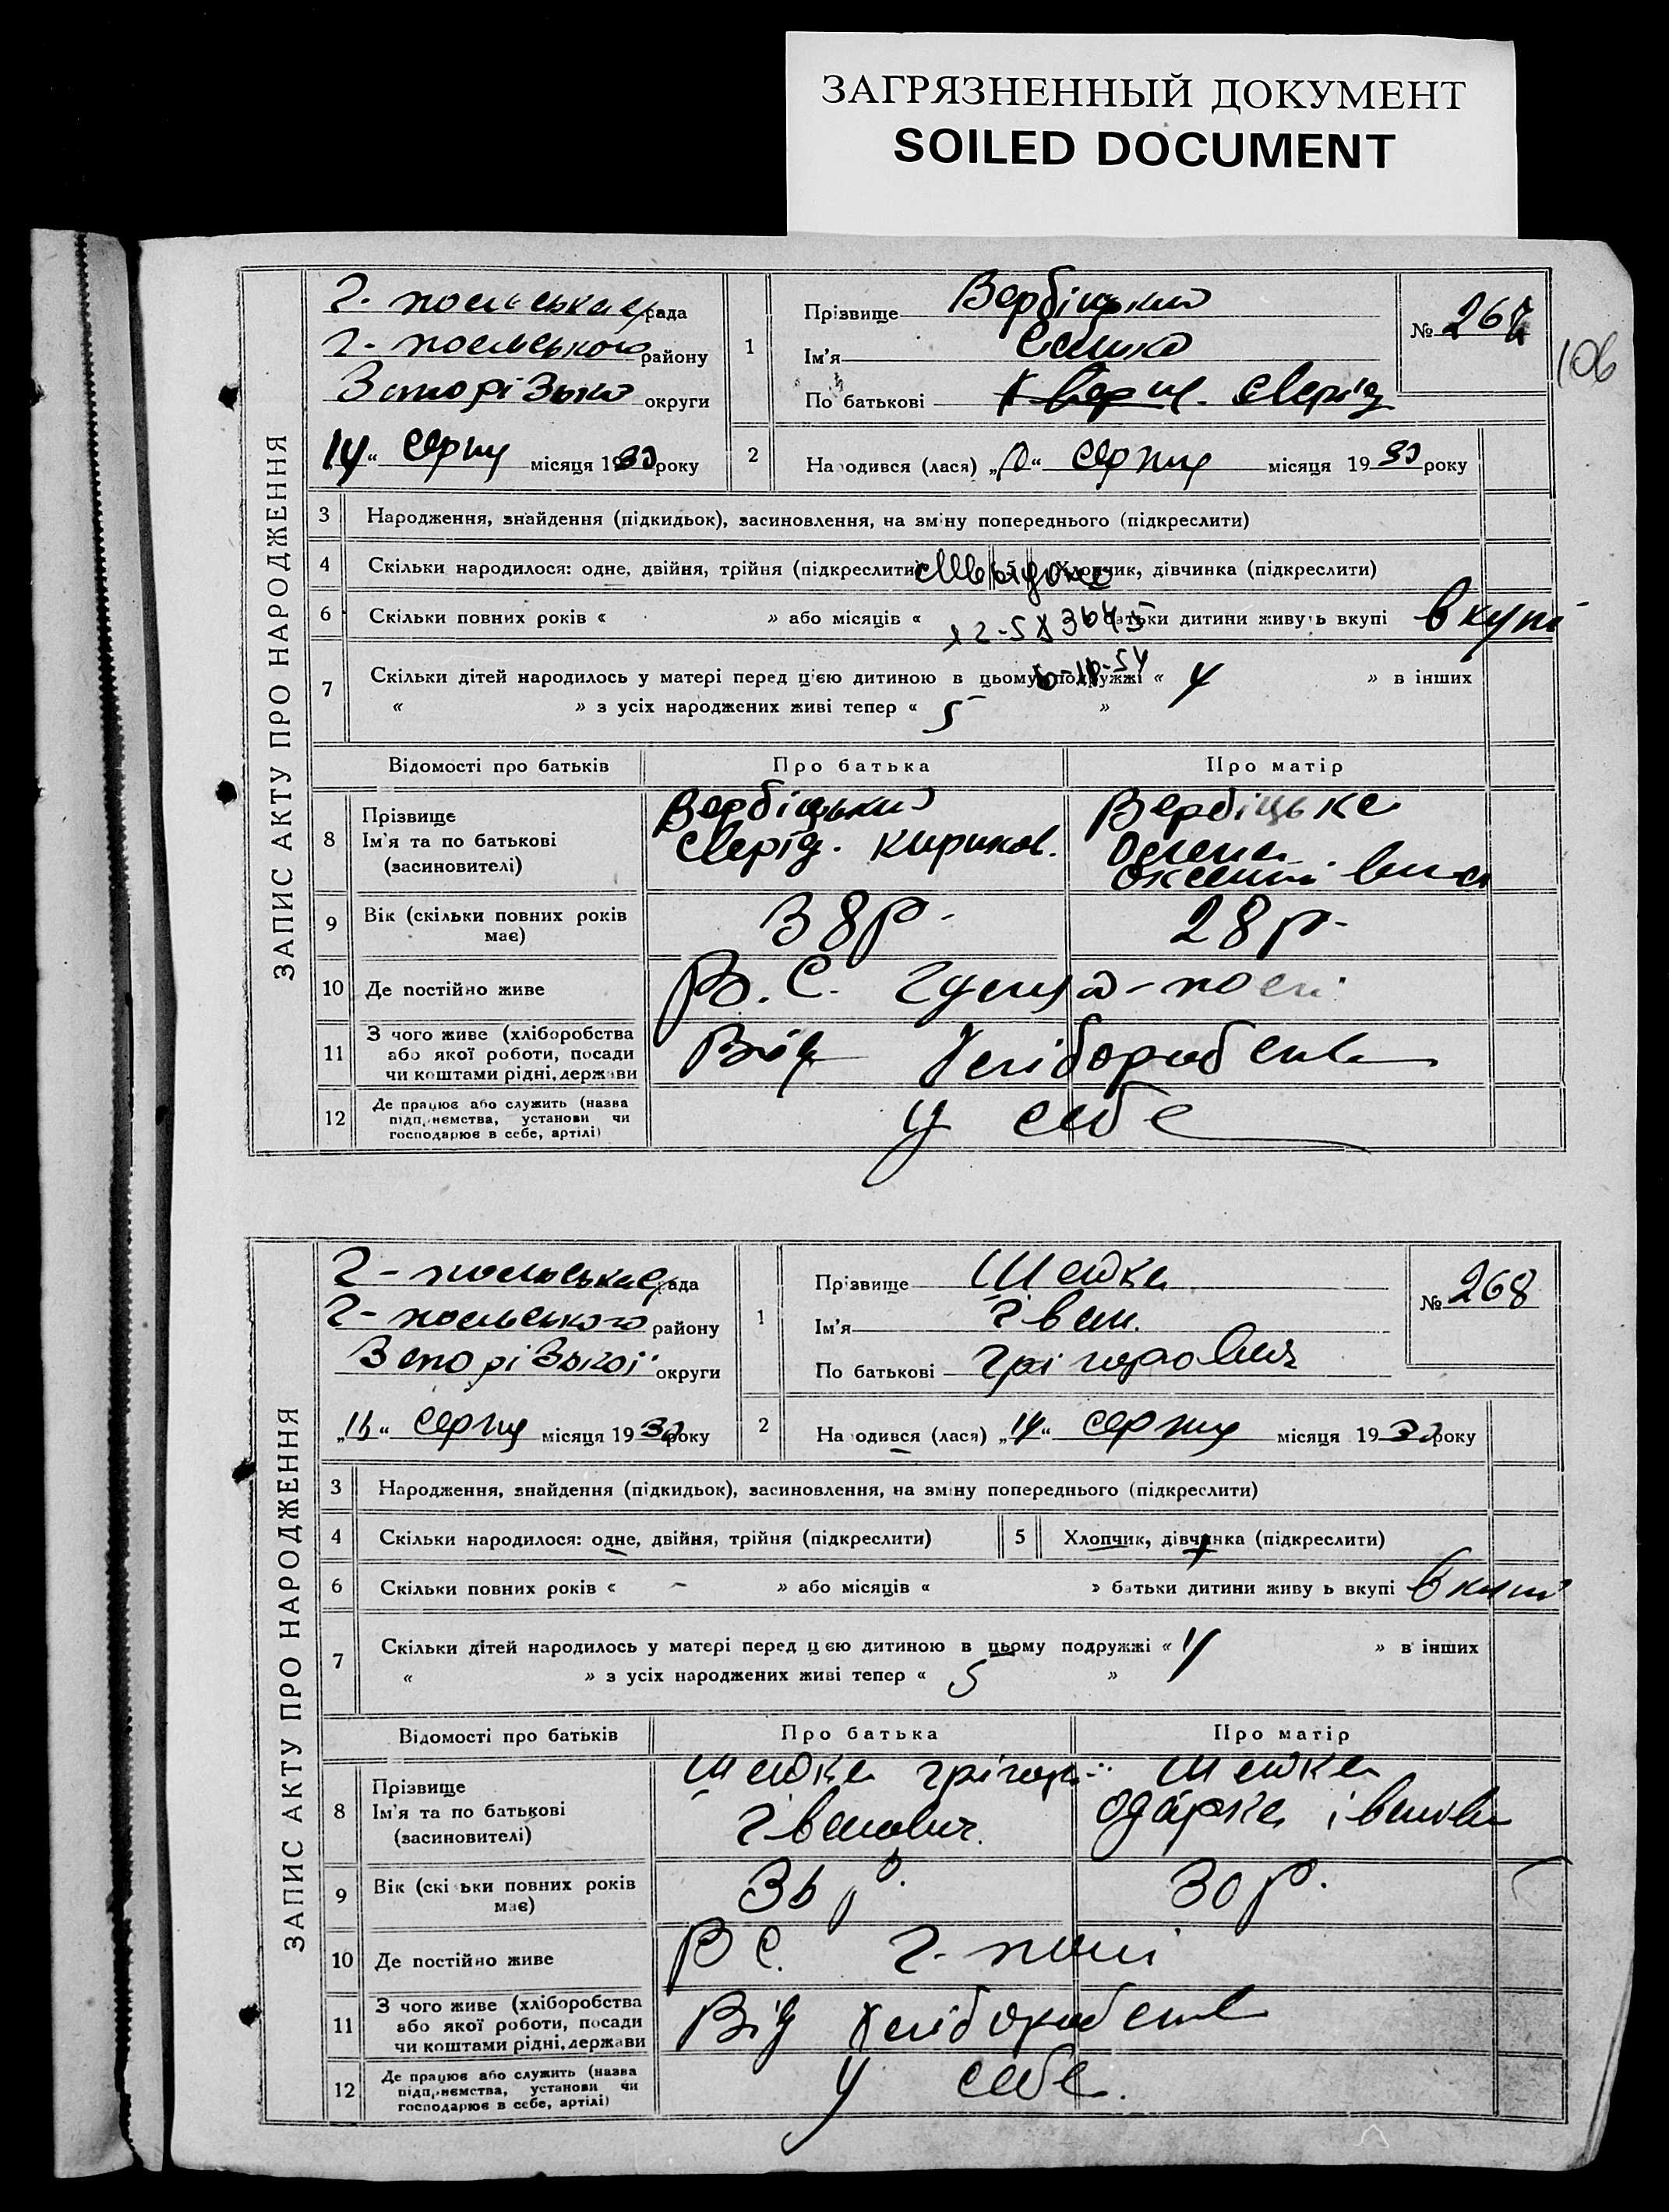 ЗАГРЯЗНЕННЫЙ ДОКУМЕНТ
SOILED DOCUMENT
106
ЗАПИС АКТУ ПРО НАРОДЖЕННЯ
Г. польська рада
Г. польського району
Запорізько округи
14 “ серпня місяця 1930 року
1
Прізвище Вербіцький
Ім'я
По батькові Сверід
№ 267
2
Народився (лася) „ “ серпня місяця 1930 року
3 Народження, знайдення (підкидьок), засиновлення, на зміну попереднього (підкреслити)
4 Скільки народилося: одне, двійня, трійня (підкреслити) 5 Хлопчик, дівчинка (підкреслити)
6 Скільки повних років « » або місяців « батьки дитини живуть вкупі вкупі
7 Скільки дітей народилось у матері перед цією дитиною в цьому подружжі « 4 » в інших
« » з усіх народжених живі тепер « 5 »
Відомості про батьків Про батька Про матір
8 Прізвище Ім'я та по батькові (засновителі)
Вербіцький
Сверід. Кириков.
Вербіцька
Олена
9 Вік (скільки повних років має) 38 р. 28 р.
10 Де постійно живе В. С. Гуляй-полі
11 З чого живе (хліборобства або якої роботи, посади чи коштами рідні, держави Від хліборобства
12 Де працює або служить (назва підприємства, установи чи господарює в себе, артілі) у себе
ЗАПИС АКТУ ПРО НАРОДЖЕННЯ
Г-польська рада
Г-польського району
Запорізької округи
„ “ серпня місяця 1930 року
1
Прізвище Шейка
Ім'я Іван
По батькові Грігорович
№ 268
2
Народився (лася) „14“ серпня місяця 1930 року
3 Народження, знайдення (підкидьок), засиновлення, на зміну попереднього (підкреслити)
4 Скільки народилося: одне, двійня, трійня (підкреслити) 5 Хлопчик, дівчинка (підкреслити)
6 Скільки повних років « - » або місяців « » батьки дитини живуть вкупі вкупі
7 Скільки дітей народилось у матері перед цією дитиною в цьому подружжі « 4 » в інших
« » з усіх народжених живі тепер « 5 »
Відомості про батьків Про батька Про матір
8 Прізвище Ім'я та по батькові (засиновителі)
Шейка Грігорі
Іванович
Шейка
Одарка Іванов
9 Вік (скільки повних років має) 36 р. 30 р.
10 Де постійно живе В С. Г-полі
11 З чого живе (хліборобства або якої роботи, посади чи коштами рідні, держави Від хліборобства
12 Де працює або служить (назва підприємства, установи чи господарює в себе, артілі) у себе.